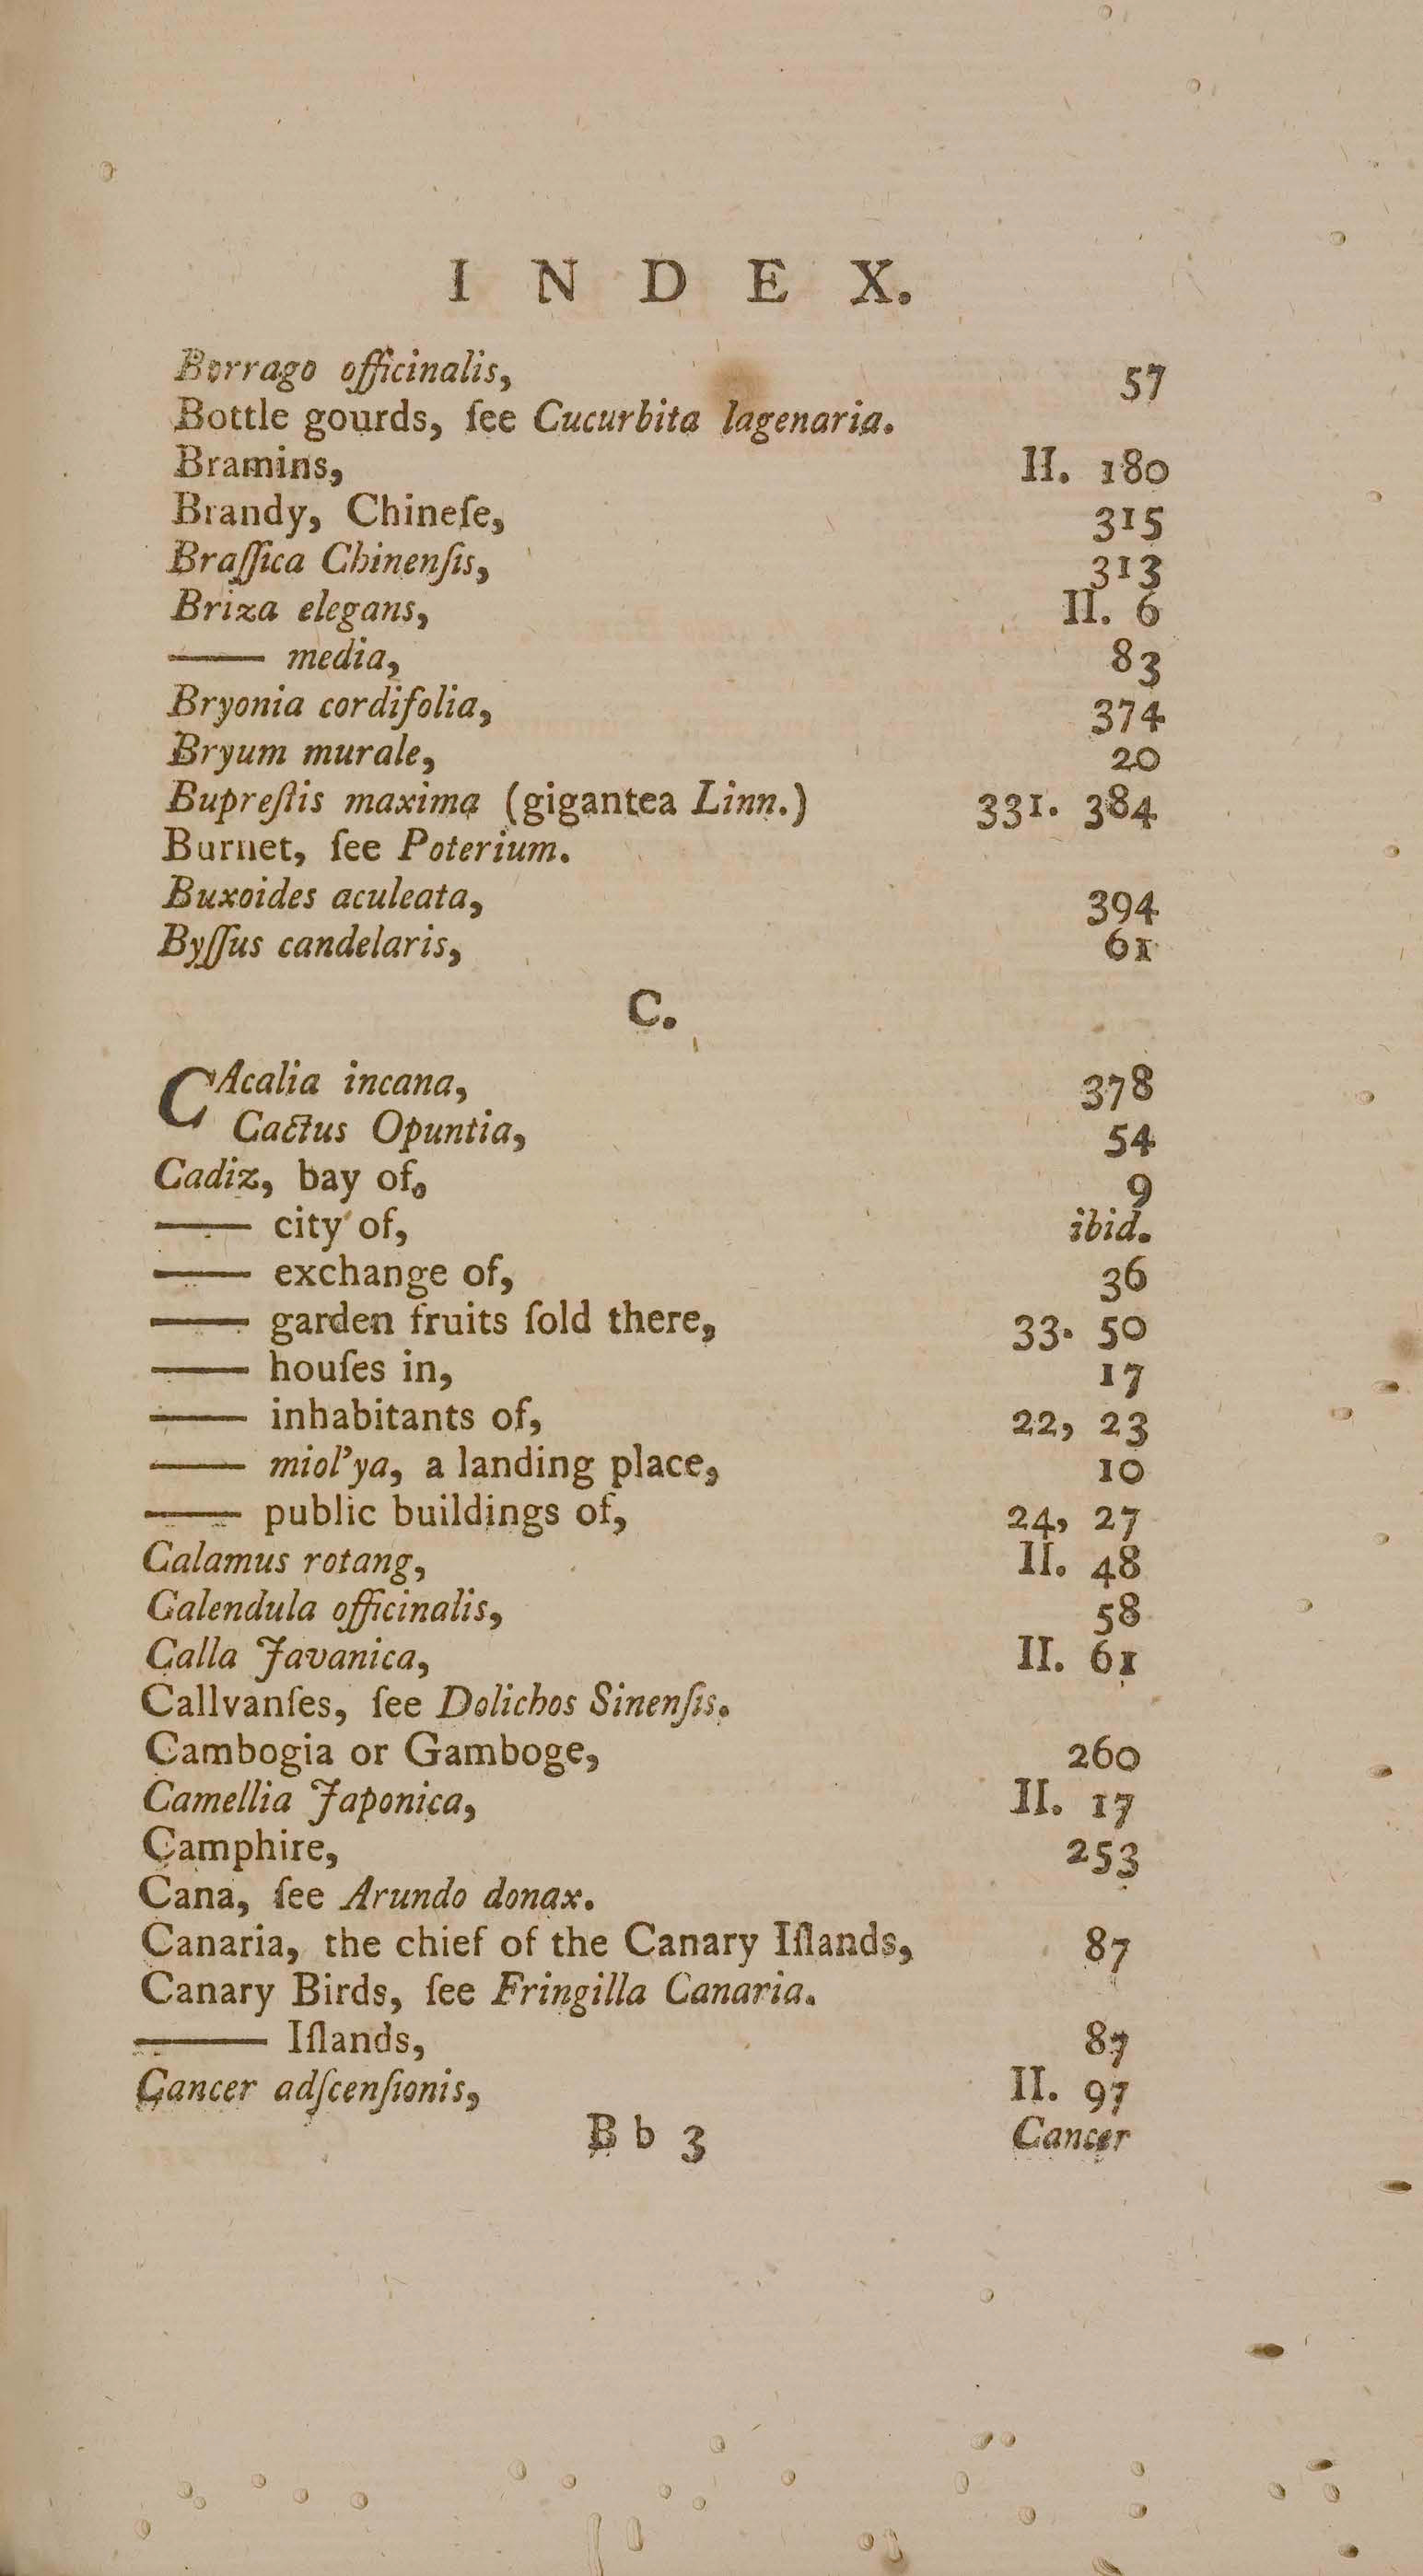 I N D E X.
Borrago officinalis, 57
Bottle gourds, ſee Cucurbita lagenaria.
Bramins, II. 180
Brandy, Chineſe, 315
Braſſica Chinenſis, 313
Briza elegans, II. 6
—— media, 83
Bryonia cordifolia, 374
Bryum murale, 20
Bupreſtis maxima (gigantea Linn.) 331. 384
Burnet, ſee Poterium.
Buxoides aculeata, 394
Byſſus candelaris, 61
C.
CAcalia incana, 378
Cactus Opuntia, 54
Cadiz, bay of, 9
—— city of, ibid.
—— exchange of, 36
—— garden fruits ſold there, 33. 50
—— houſes in, 17
—— inhabitants of, 22, 23
—— miol’ya, a landing place, 10
—— public buildings of, 24, 27
Calamus rotang, II. 48
Calendula officinalis, 58
Calla Javanica, II. 61
Callvanſes, ſee Dolichos Sinenſis.
Cambogia or Gamboge, 260
Camellia Japonica, II. 17
Camphire, 253
Cana, ſee Arundo donax.
Canaria, the chief of the Canary Iſlands, 87
Canary Birds, ſee Fringilla Canaria.
——— Iſlands, 87
Cancer adſcenſionis, II. 97
B b 3 Cancer